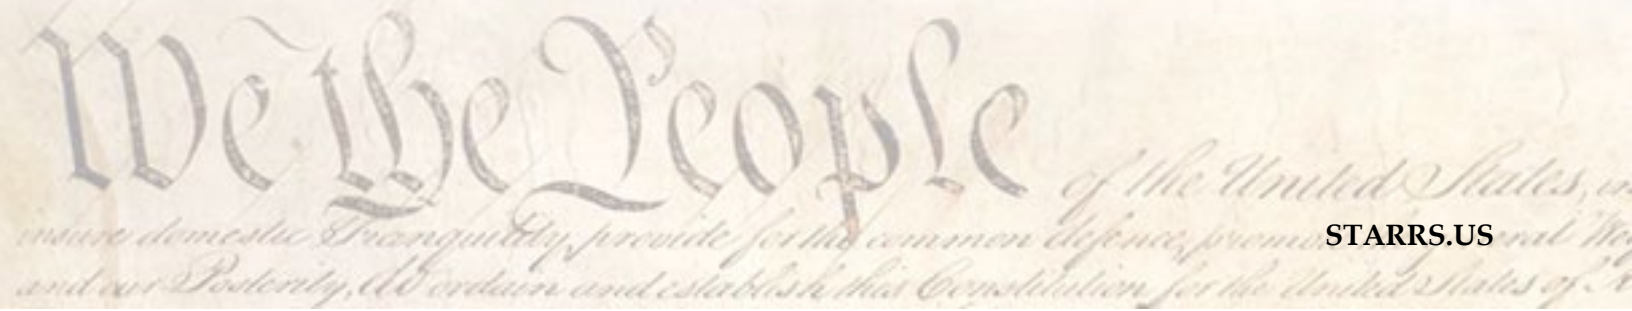 We the People of the United States, in
insure domestic Tranquility, provide for the common defence, promo STARRS.US ral Wel
and our Posterity, do ordain and establish this Constitution for the United States of A